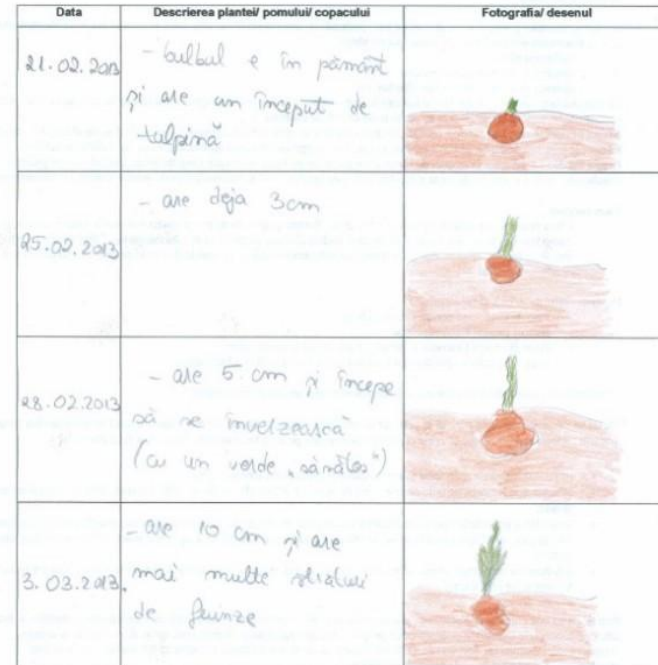 Data Descrierea plantei/ pomului/ copacului Fotografia/ desenul
21.02.2013
- bulbul e în pământ
și are un început de
tulpină
25.02.2013
- are deja 3cm
28.02.2013
- are 5 cm și începe
să se înverzească
(cu un verde „sănătos")
3.03.2013.
- are 10 cm și are
mai multe straturi
de frunze